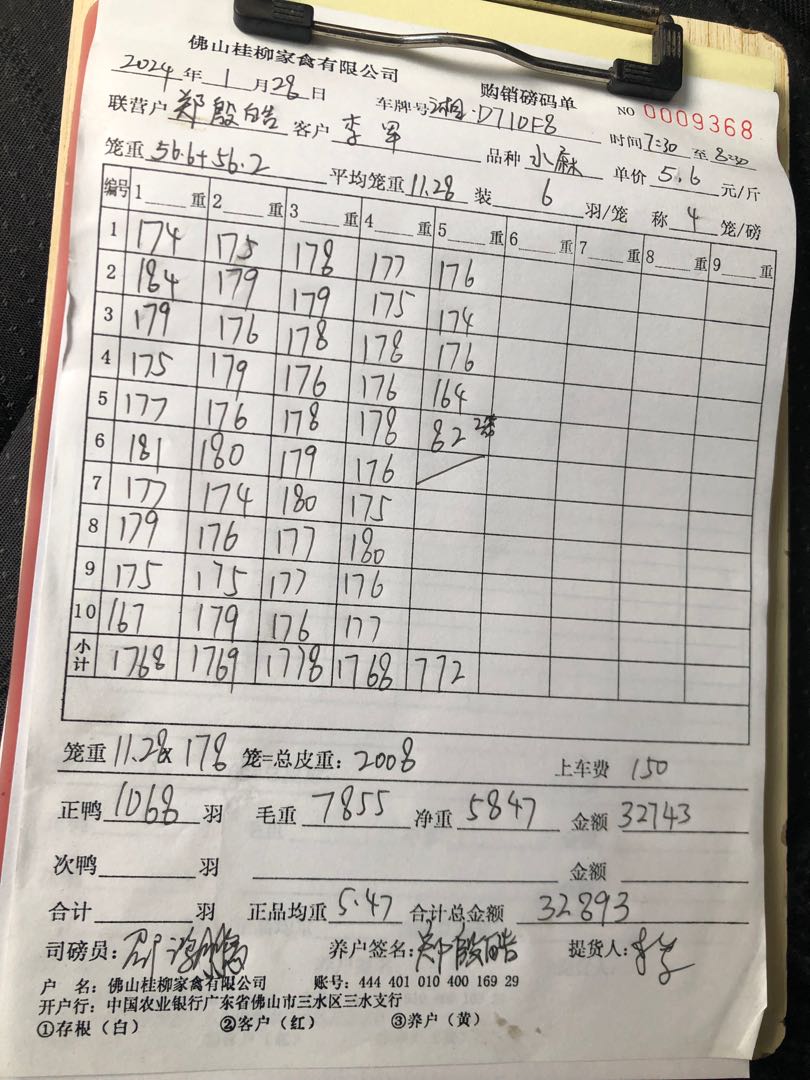 佛山桂柳家禽有限公司 购销磅码单 NO 0009368
2024年1月28日 车牌号 湘·D710F8 时间7:30至8:30
联营户 郑殷皓 客户 李军 品种 水麻 单价 5.6 元/斤
笼重 56.6+56.2 平均笼重 11.28 装 6 羽/笼 称 4 笼/磅
编号 1 重 2 重 3 重 4 重 5 重 6 重 7 重 8 重 9 重
1 174 175 178 177 176
2 184 179 179 175 174
3 179 176 178 178 176
4 175 179 176 176 164
5 177 176 178 178 82
6 181 180 179 176
7 177 174 180 175
8 179 176 177 180
9 175 175 177 176
10 167 179 176 177
小计 1768 1769 1778 1768 772
笼重 11.28x 178 笼=总皮重: 2008 上车费 150
正鸭 1068 羽 毛重 7855 净重 5847 金额 32743
次鸭 羽 金额
合计 羽 正品均重 5.47 合计总金额 32893
司磅员: 养户签名: 郑殷皓 提货人:
户 名: 佛山桂柳家禽有限公司 账号: 444 401 010 400 169 29
开户行: 中国农业银行广东省佛山市三水区三水支行
①存根（白） ②客户（红） ③养户（黄）